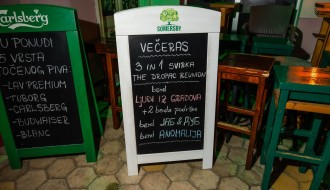 Carlsberg
U PONUDI
5 VRSTA
TOČENOG PIVA:
-LAV PREMIUM
-TUBORG
-CARLSBERG
-BUDWEISER
-BLANC
SOMERSBY
VEČERAS
3 IN 1 SVIRKA
THE DROPAC REUNION
bend
LJUDI IZ GRADOVA
+2 benda podrške
bend JAБ & ДУБ
bend ANOMALIJA